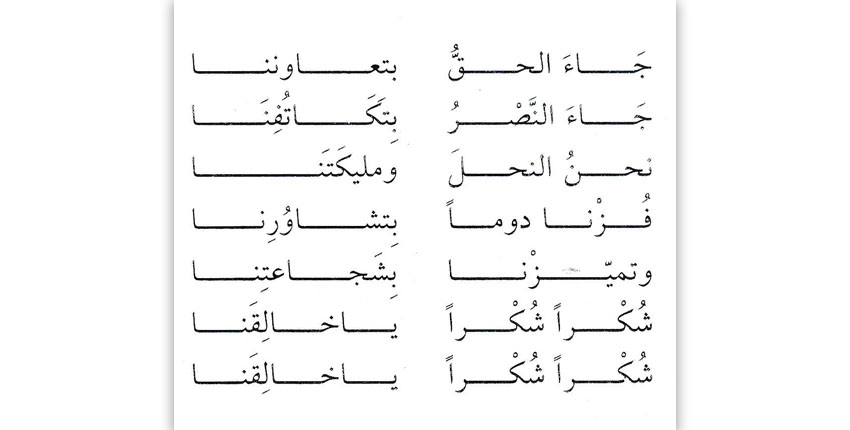 جَاءَ الحقُّ بتعاوننا
جَاءَ النَّصْرُ بِتَكَاتُفِنَا
نحنُ النحلَ ومليكَتَنا
فُزْنا دوماً بِتشاوُرِنا
وتميّزْنا بِشَجاعتِنا
شُكْراً شُكْراً ياخالِقَنا
شُكْراً شُكْراً ياخالِقَنا